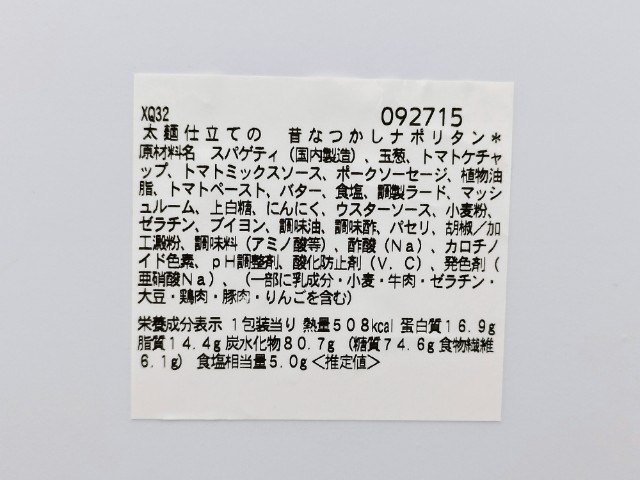 XQ32 092715
太麺仕立ての 昔なつかしナポリタン＊
原材料名 スパゲティ（国内製造）、玉葱、トマトケチャ
ップ、トマトミックスソース、ポークソーセージ、植物油
脂、トマトペースト、バター、食塩、調製ラード、マッシ
ュルーム、上白糖、にんにく、ウスターソース、小麦粉、
ゼラチン、ブイヨン、調味油、調味酢、パセリ、胡椒／加
工澱粉、調味料（アミノ酸等）、酢酸（Ｎａ）、カロチノ
イド色素、ｐＨ調整剤、酸化防止剤（Ｖ．Ｃ）、発色剤（
亜硝酸Ｎａ）、（一部に乳成分・小麦・牛肉・ゼラチン・
大豆・鶏肉・豚肉・りんごを含む）
栄養成分表示 1包装当り 熱量508kcal 蛋白質16.9g
脂質14.4g 炭水化物80.7g （糖質74.6g 食物繊維
6.1g） 食塩相当量5.0g＜推定値＞